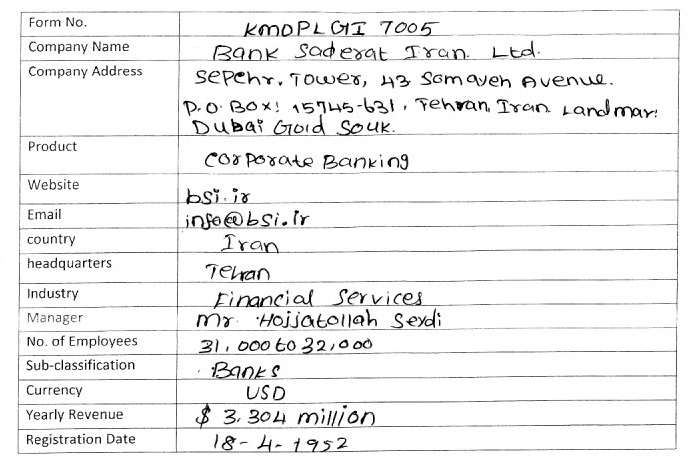 Form No. KMDPLGI 7005
Company Name Bank Saderat Iran. Ltd.
Company Address Sepehr, Tower, 43 Somayeh Avenue.
P.O. Box: 15745-631, Tehran, Iran Landmar:
Dubai Gold Souk.
Product Corporate Banking
Website bsi.ir
Email info@bsi.ir
country Iran
headquarters Tehran
Industry Financial Services
Manager Mr. Hojjatollah Seydi
No. of Employees 31,000 to 32,000
Sub-classification Banks
Currency USD
Yearly Revenue $ 3.304 million
Registration Date 18-4-1952